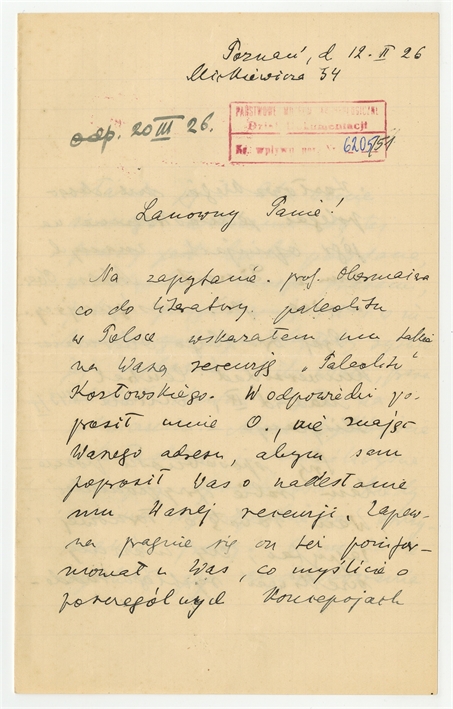 Poznań, d 12-II 26
Mickiewicza 34
odp. 20 III 26.
PAŃSTWOWE MUZEUM ARCHEOLOGICZNE
Dział Dokumentacji
Nr. wpływu 6205/51
Szanowny Panie!
Na zapytanie prof. Obermaiera
co do literatury paleolitu
w Polsce wskazałem mu także
na Waszą recenzję „Paleolitu”
Kozłowskiego. W odpowiedzi po-
prosił mnie O., nie znając
Waszego adresu, abym sam
poprosił Was o nadesłanie
mu Waszej recenzji. Zapew-
na pragnie się on też poinfor-
mować u Was, co myślicie o
poszczególnych koncepcjach